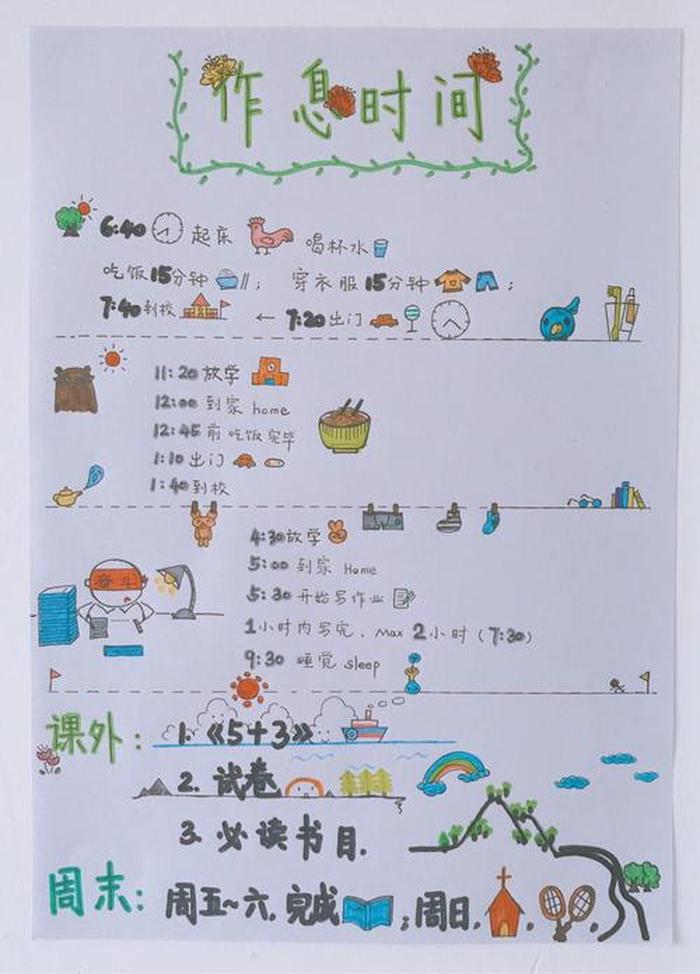 作息时间
6:40 起床 喝杯水
吃饭15分钟 ; 穿衣服15分钟 ;
7:40到校 ← 7:20出门
11:20放学
12:00到家 home
12:45前吃饭完毕
1:10出门
1:40到校
4:30放学
5:00到家 Home
奋斗
5:30开始写作业
1小时内写完, Max 2小时(7:30)
9:30 睡觉 sleep
课外: 1.《5+3》
2. 试卷
3. 必读书目.
周末: 周五~六, 完成 ; 周日, , .